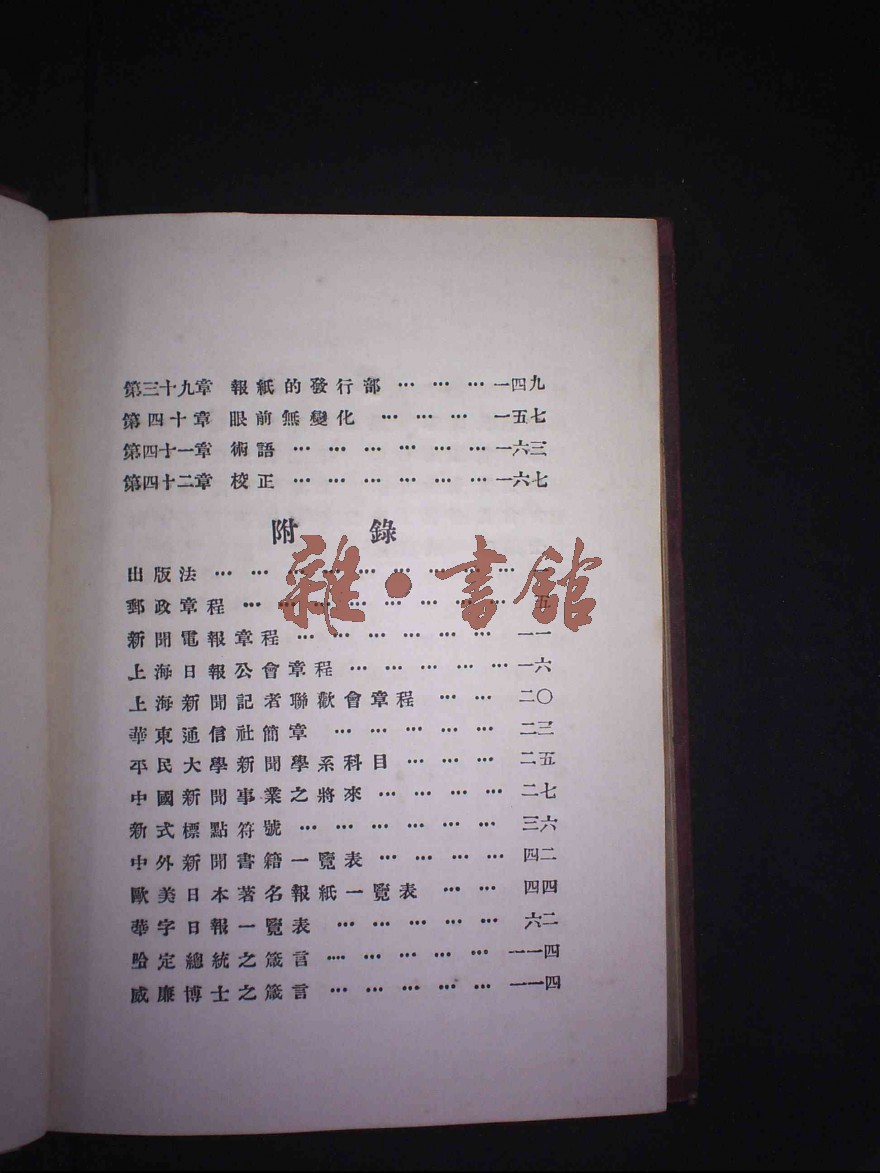 第三十九章 報紙的發行部 … … … 一四九
第四十章 眼前無變化 … … … 一五七
第四十一章 術語 … … … … … … 一六三
第四十二章 校正 … … … … … … 一六七
附錄
出版法 … … … … … … … … … 一
郵政章程 … … … … … … … … 五
新聞電報章程 … … … … … … 一一
上海日報公會章程 … … … … 一六
上海新聞記者聯歡會章程 … … 二〇
華東通信社簡章 … … … … … 二三
平民大學新聞學系科目 … … … 二五
中國新聞事業之將來 … … … … 二七
新式標點符號 … … … … … … 三六
中外新聞書籍一覽表 … … … … 四二
歐美日本著名報紙一覽表 … … 四四
華字日報一覽表 … … … … … 六二
哈定總統之箴言 … … … … … 一一四
威廉博士之箴言 … … … … … 一一四
雜·書館